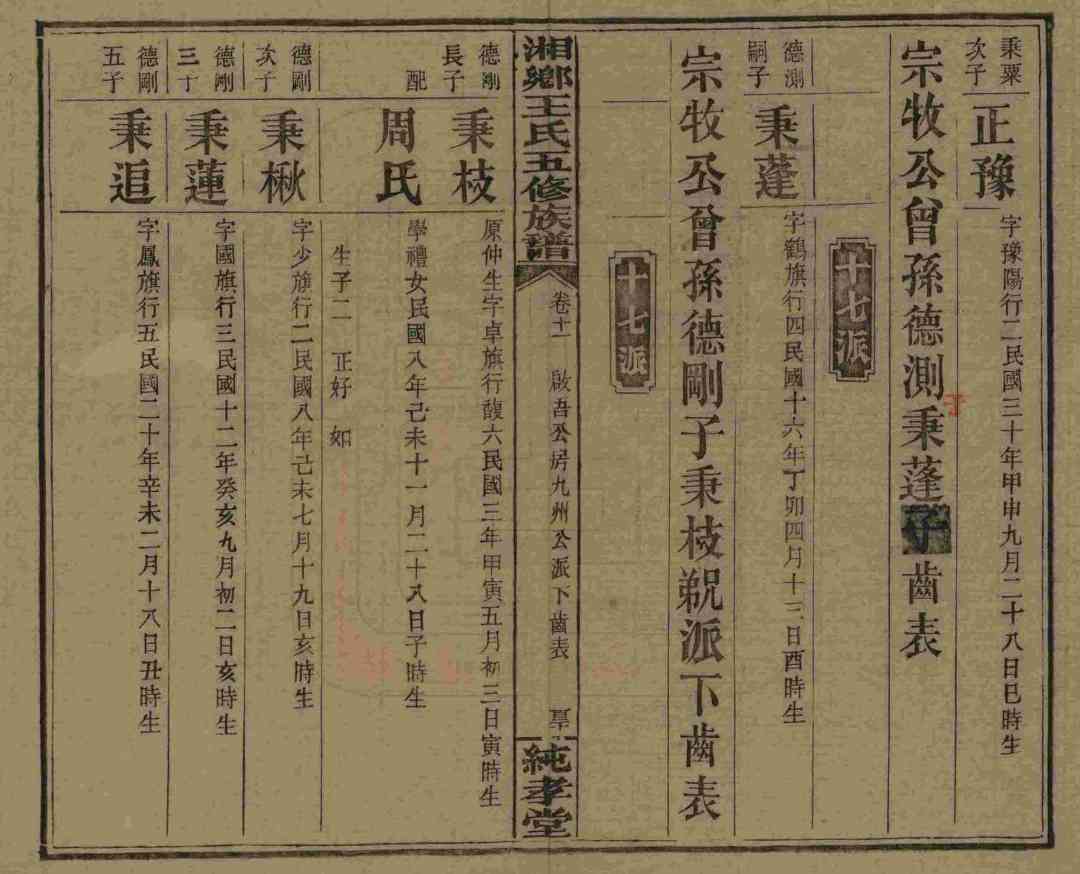 秉粟
次子
正豫
字豫陽行二民國三十年甲申九月二十八日巳時生
宗牧公曾孫德測秉蓬子齒表
十七派
德測
嗣子
秉蓬
字鶴旗行四民國十六年丁卯四月十三日酉時生
宗牧公曾孫德剛子秉枝派下齒表
十七派
湘鄉王氏五修族譜
卷十一
啟吾公房九州公派下齒表
純孝堂
德剛
長子
秉枝
原仲生字卓旗行馥六民國三年甲寅五月初三日寅時生
配
周氏
學禮女民國八年己未十一月二十八日子時生
生子二 正好 如
德剛
次子
秉楸
字少旗行二民國八年己未七月十九日亥時生
德剛
三子
秉蓮
字國旗行三民國十二年癸亥九月初二日亥時生
德剛
五子
秉追
字鳳旗行五民國二十年辛未二月十八日丑時生